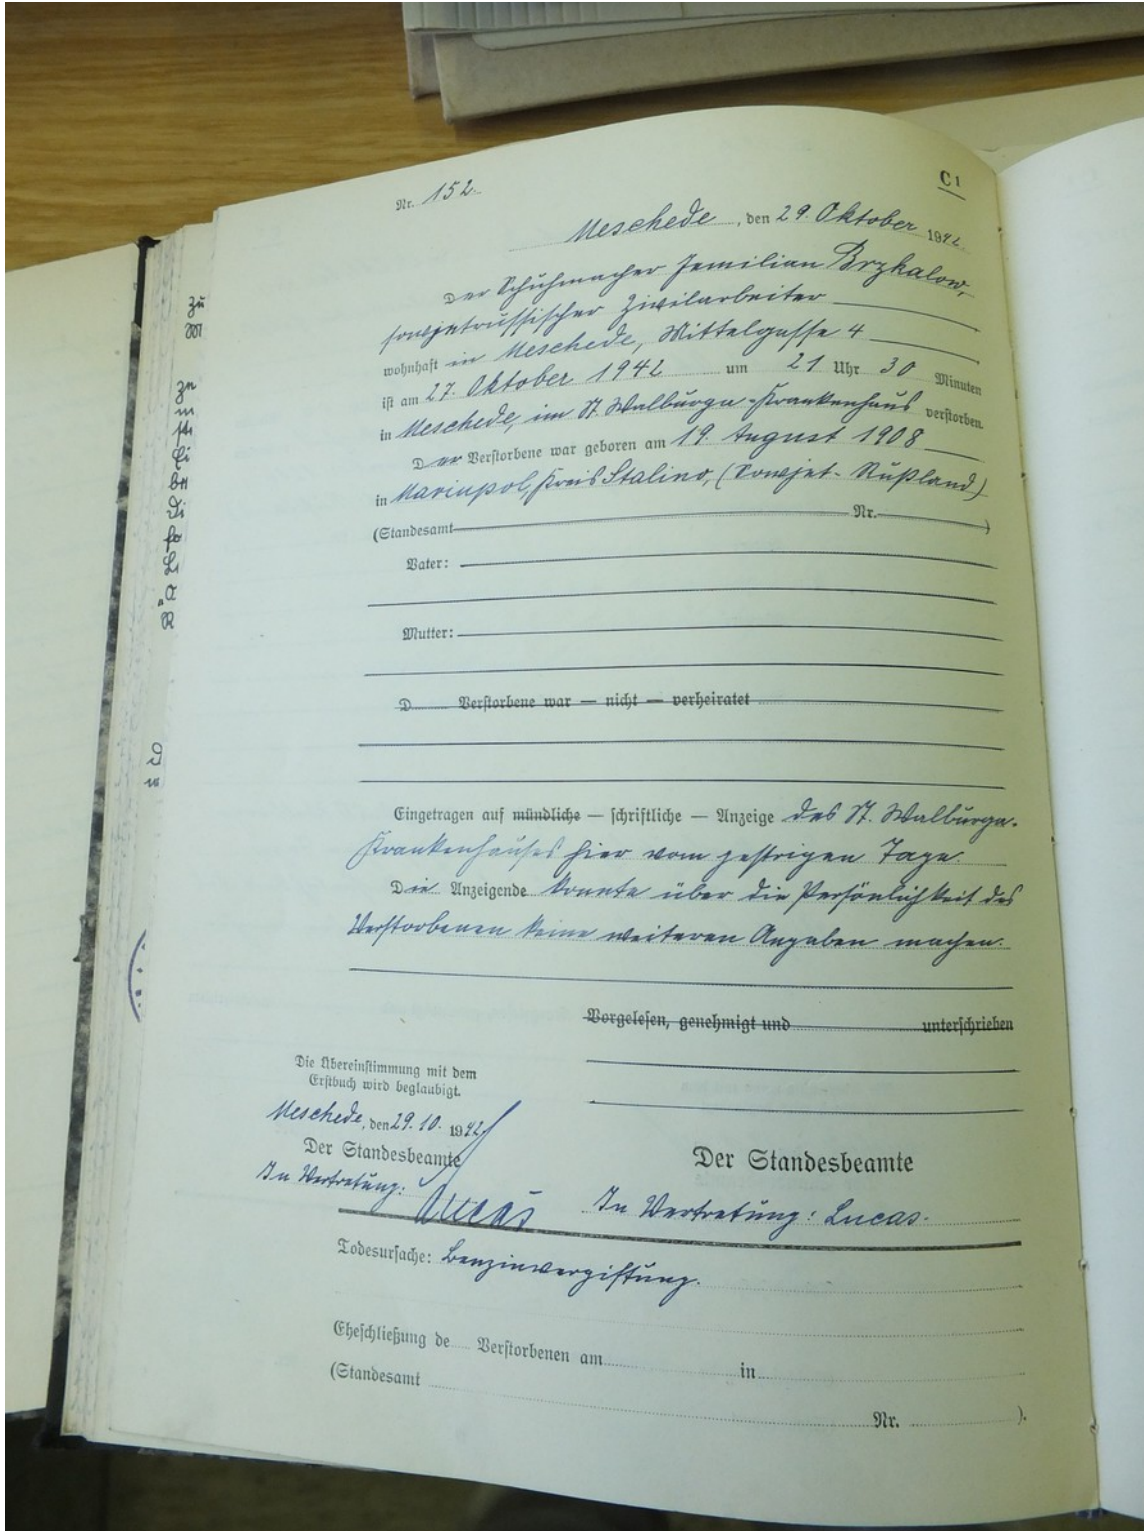 C1
Nr. 152.
Meschede, den 29. Oktober 1942.
Der Schuhmacher Jemilian Brzkalow,
sowjetrussischer Zivilarbeiter
wohnhaft in Meschede, Mittelgasse 4
ist am 27. Oktober 1942 um 21 Uhr 30 Minuten
in Meschede, im St. Walburga-Krankenhaus verstorben.
Der Verstorbene war geboren am 19. August 1908
in Mariupol, Kreis Stalino, (Sowjet-Rußland)
(Standesamt Nr. )
Vater:
Mutter:
D Verstorbene war — nicht — verheiratet
Eingetragen auf mündliche — schriftliche — Anzeige des St. Walburga-
Krankenhauses hier vom gestrigen Tage.
Die Anzeigende konnte über die Persönlichkeit des
Verstorbenen keine weiteren Angaben machen.
Vorgelesen, genehmigt und unterschrieben
Die Übereinstimmung mit dem
Erstbuch wird beglaubigt.
Meschede, den 29. 10. 1942
Der Standesbeamte
In Vertretung: Lucas
Der Standesbeamte
In Vertretung: Lucas.
Todesursache: Benzinvergiftung.
Eheschließung de Verstorbenen am in
(Standesamt Nr. ).